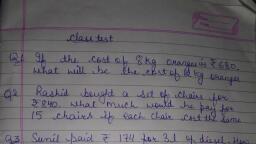 Class test
Q1 If the cost of 8 kg oranges is ₹ 680,
what will be the cost of kg oranges
Q2 Rashid bought a set of chairs for
₹ 840. What much would he pay for
15 chairs if each chair cost the same
Q3 Sunil paid ₹ 174 for 3 l of diesel.